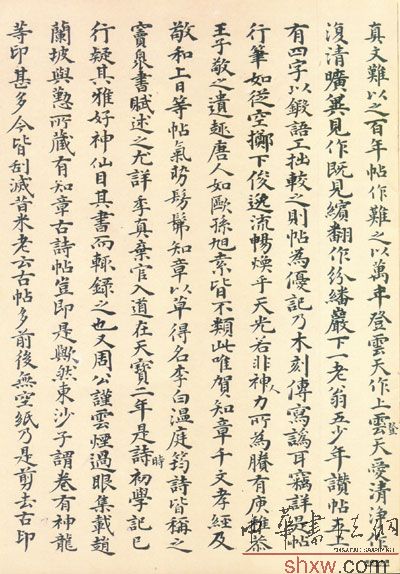 真文難以之百年帖作難之以萬年登雲天作上登雲天愛清淨作
復清曠冀見作既見繽翻作紛繙巖下一老翁五少年讚帖五上
有四字以鍛語工拙較之則帖為優記乃木刻傳寫譌耳竊詳是帖
行筆如從空擲下俊逸流暢煥乎天光若非神人力所為賸有庾稚恭
王子敬之遺趣唐人如歐孫旭素皆不類此唯賀知章千文孝經及
敬和上日等帖氣勢髣髴知章以草得名李白溫庭筠詩皆稱之
竇臮書賦述之尤詳季真棄官入道在天寶二年是詩時初學記已
行疑其雅好神仙目其書而輒錄之也又周公謹雲煙過眼集載趙
蘭坡與懃所藏有知章古詩帖豈即是歟然東沙子謂卷有神龍
等印甚多今皆刮滅昔米老云古帖多前後無空紙乃是剪去古印
中華書法網
shxw.com